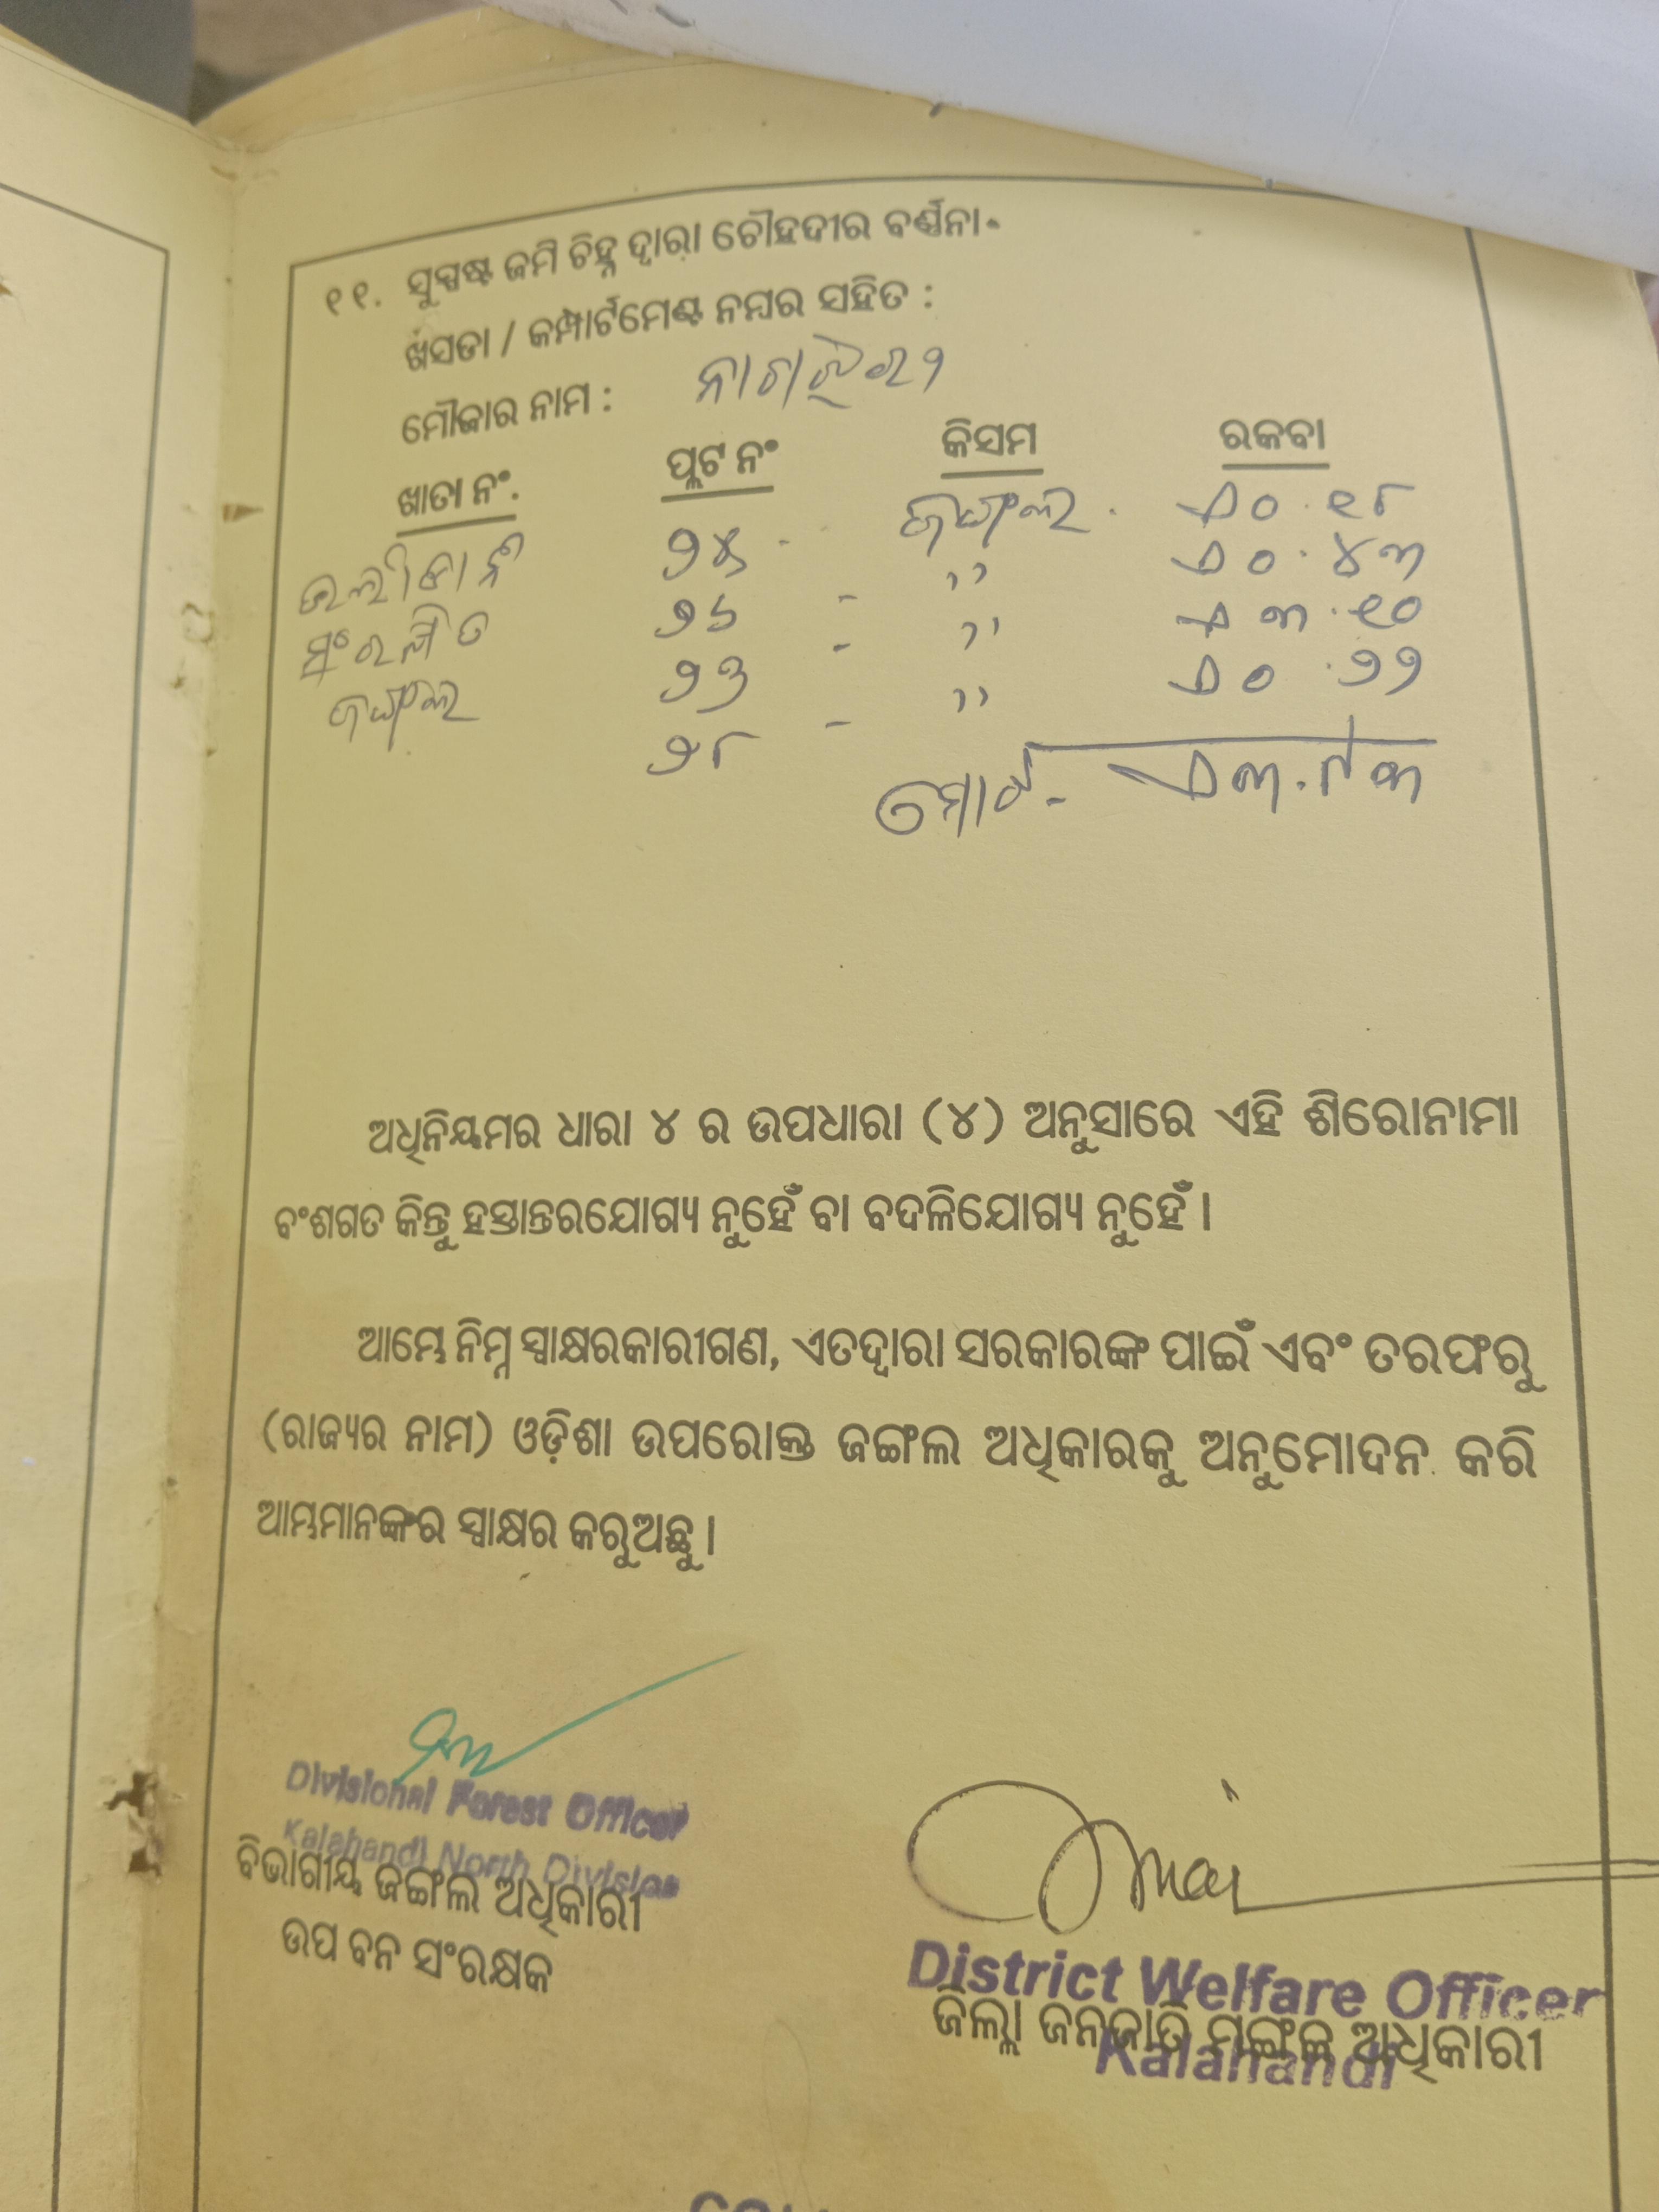 ୧୧. ସୁସ୍ପଷ୍ଟ ଜମି ଚିହ୍ନ ଦ୍ୱାରା ଚୌହଦୀର ବର୍ଣ୍ଣନା-
ଖସଡା / କମ୍ପାର୍ଟମେଣ୍ଟ ନମ୍ବର ସହିତ :
ମୌଜାର ନାମ :
ଖାତା ନଂ. ପ୍ଲଟ ନଂ କିସମ ରକବା
୨୪ - ଜଙ୍ଗଲ . ଏ ୦ . ୧୮
୨୬ - ,, ଏ ୦ . ୪୩
ସଂରକ୍ଷିତ ୨୭ - ,, ଏ ୩ . ୧୦
ଜଙ୍ଗଲ ୨୮ - ,, ଏ ୦ . ୨୨
ମୋଟ - ଏ ୩.୯୩
ଅଧିନିୟମର ଧାରା ୪ ର ଉପଧାରା (୪) ଅନୁସାରେ ଏହି ଶିରୋନାମା
ବଂଶଗତ କିନ୍ତୁ ହସ୍ତାନ୍ତରଯୋଗ୍ୟ ନୁହେଁ ବା ବଦଳିଯୋଗ୍ୟ ନୁହେଁ ।
ଆମ୍ଭେ ନିମ୍ନ ସ୍ୱାକ୍ଷରକାରୀଗଣ, ଏତଦ୍ୱାରା ସରକାରଙ୍କ ପାଇଁ ଏବଂ ତରଫରୁ
(ରାଜ୍ୟର ନାମ) ଓଡ଼ିଶା ଉପରୋକ୍ତ ଜଙ୍ଗଲ ଅଧିକାରକୁ ଅନୁମୋଦନ କରି
ଆମ୍ଭମାନଙ୍କର ସ୍ୱାକ୍ଷର କରୁଅଛୁ ।
Divisional Forest Officer
Kalahandi North Division
ବିଭାଗୀୟ ଜଙ୍ଗଲ ଅଧିକାରୀ
ଉପ ବନ ସଂରକ୍ଷକ
District Welfare Officer
ଜିଲ୍ଲା ଜନଜାତି ମଙ୍ଗଳ ଅଧିକାରୀ
Kalahandi